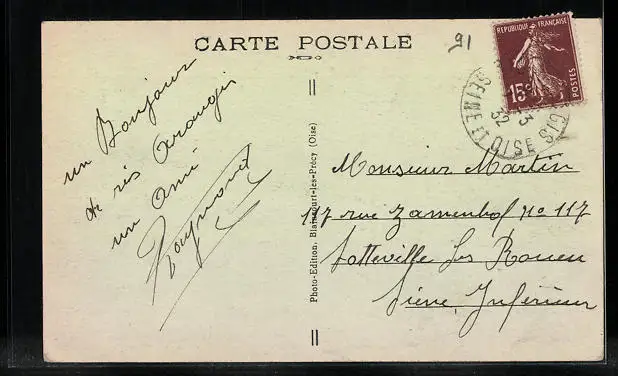 CARTE POSTALE
91
REPUBLIQUE FRANÇAISE
15c
POSTES
SEINE ET OISE
3
32
un Bonjour
un Ami
Raymond
Photo-Edition. Blaincourt-les-Précy (Oise)
Monsieur Martin
rue Zamenhof no 117
Sotteville les Rouen
Seine Inférieure